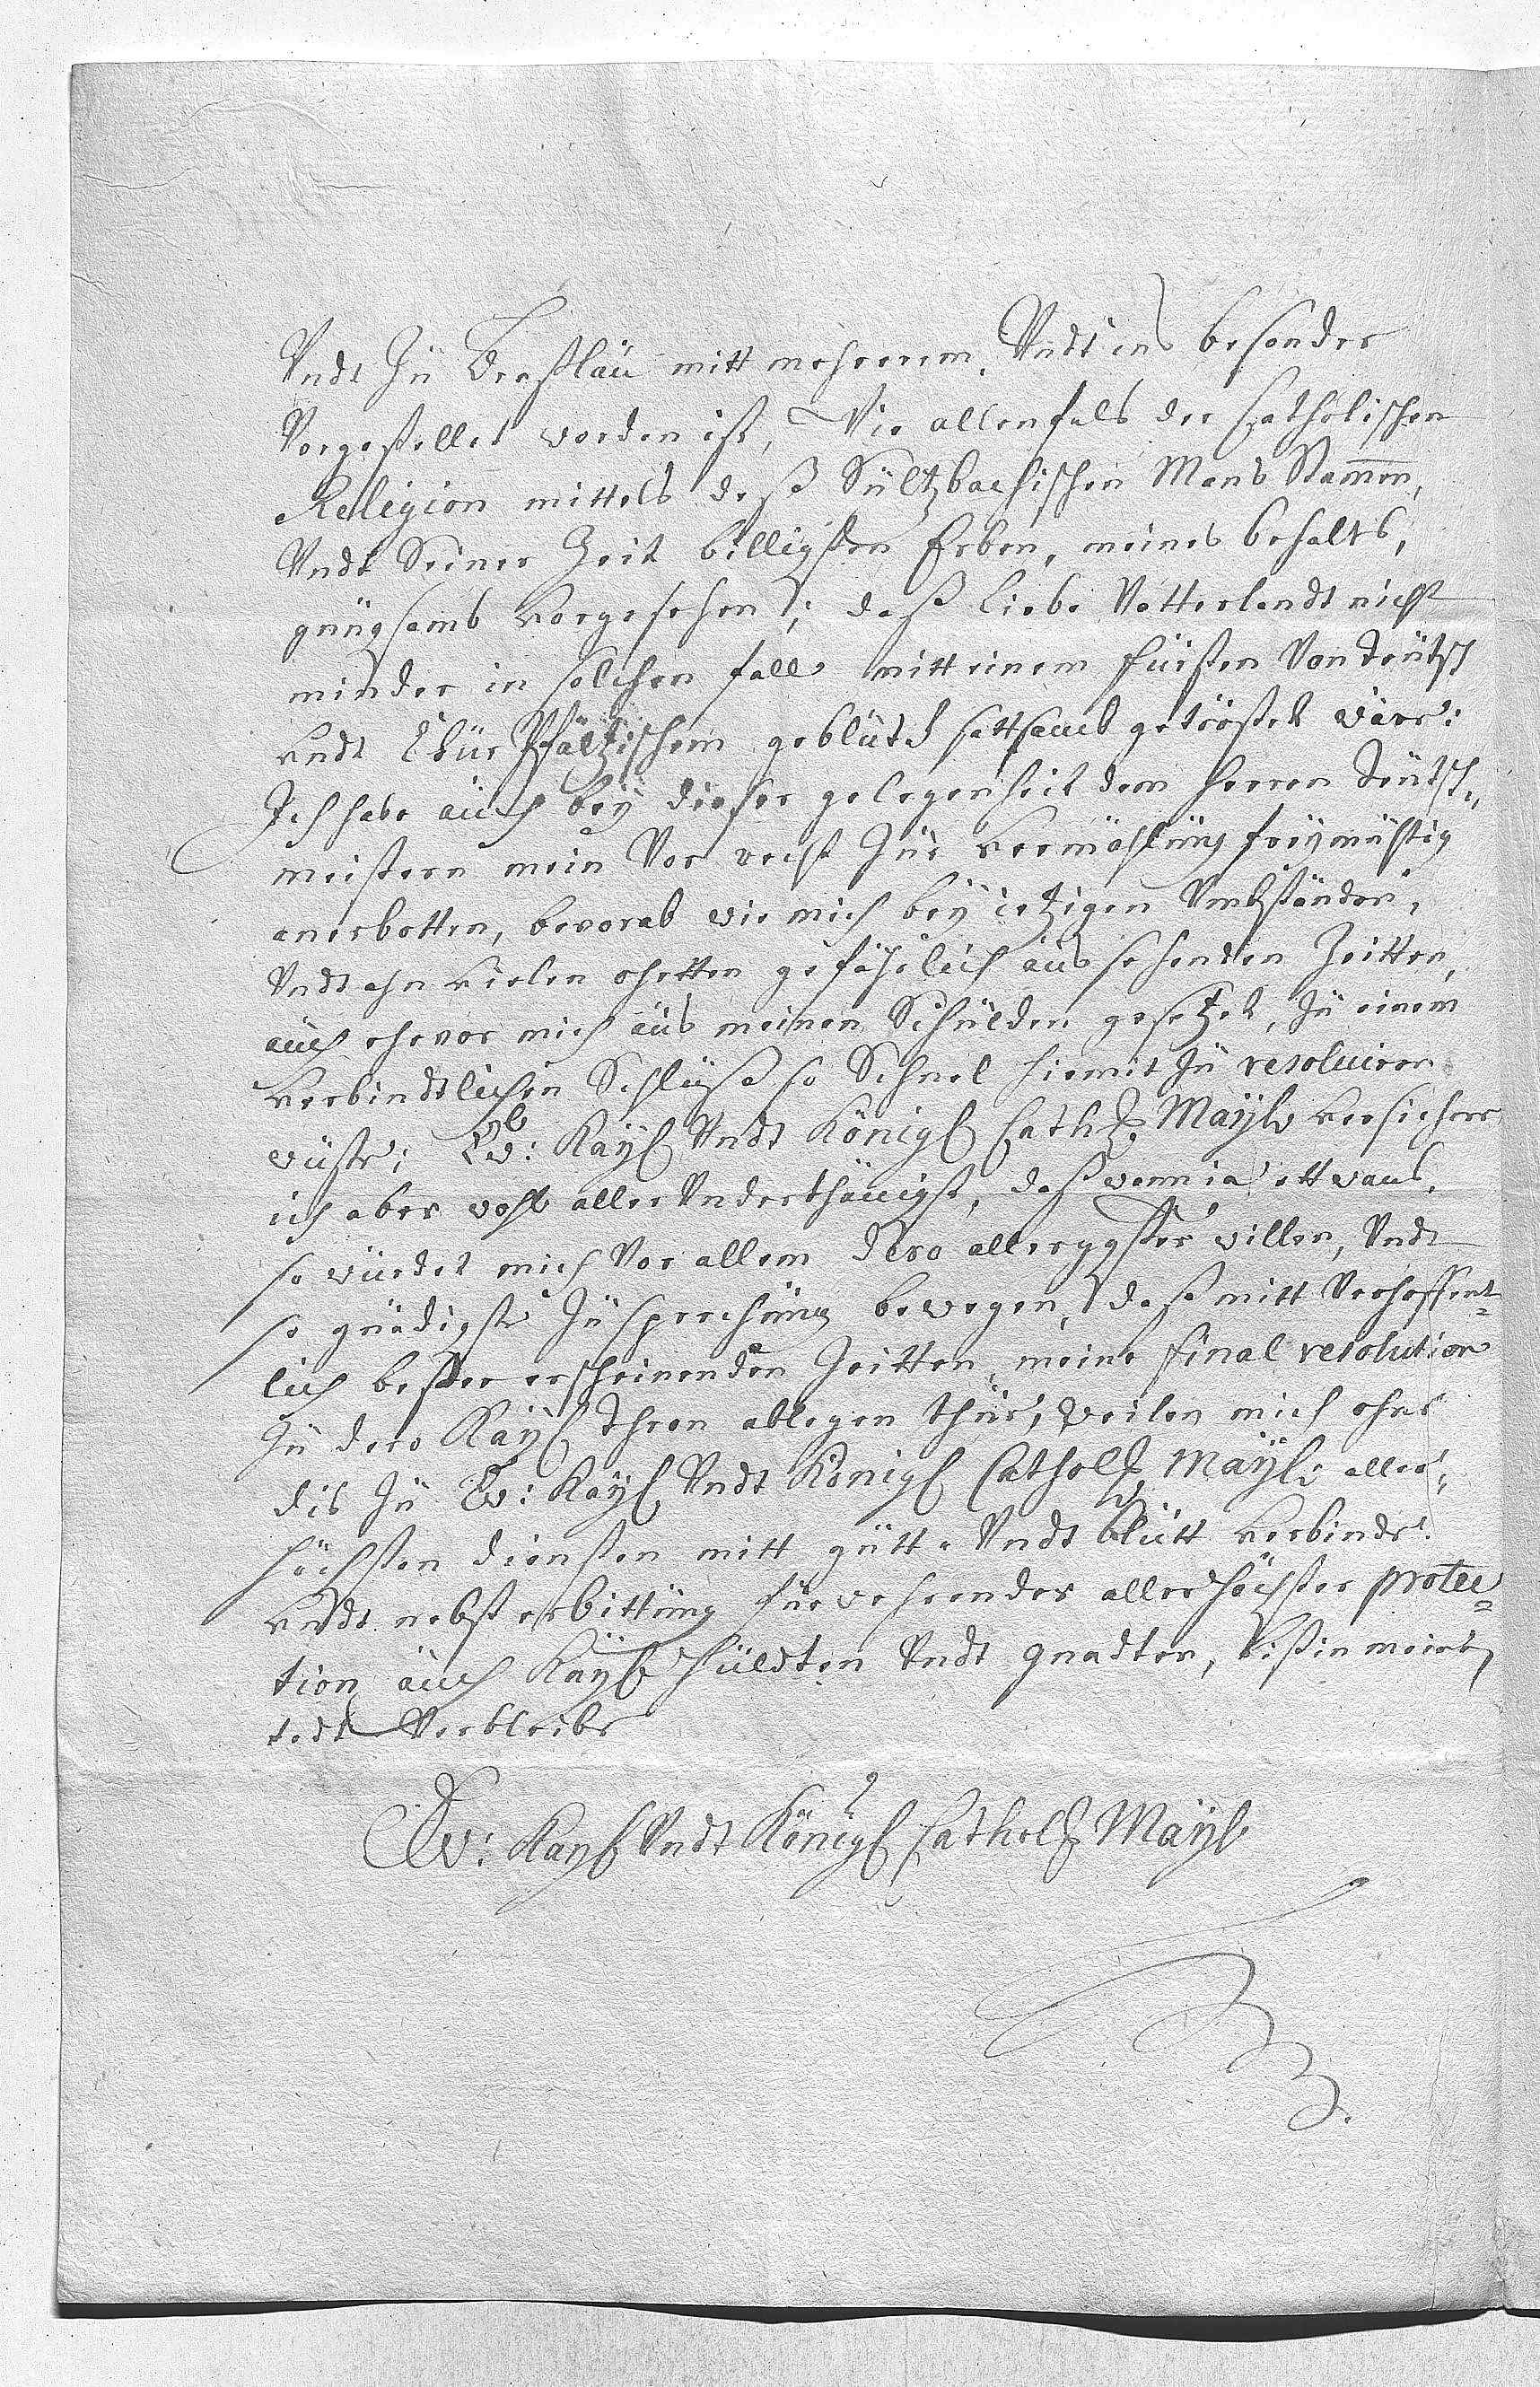 Undt Zu Breßlau mitt mehrerem, Undt ins besonder
Vorgestellet worden ist, Wie allenfals der Catholischen
Religion mittels deß Sültzbachischen Mans Stamen,
Undt Seiner Zeit billigsten Erben, meines behalts,
gnugsamb vorgesehen; daß liebe Vatterlandt nicht
minder in solchen fall mitt einem fürsten Von teutsch
undt ChurPfältzischem geblüth sattsamb getröstet wäre:
Ich habe auch bey dieser gelegenheit dem herren Teutsch„
meistern mein Vor recht Zur vermählung freymüthig
anerbotten, bevorab wie mich bey ietzigen Umbständen,
Undt ahn vielen ohrtten gefährlich aus sehenden Zeitten,
auch ehevor mich aus meinen Schulden gesetzet, Zu einem
verbindtlichen Schluße so Schnel hiemit Zu resolviren
wüste; Ew: Kayl Undt Königl Cath. Mayt versichere
ich aber wohl aller Underthänigst, daß wenn ia ettwas,
so würdet mich Vor allem dero allerggster willen, Undt
so gnädigste Zusprechung bewegen, daß mitt Verhoffent=
lich besser erscheinenden Zeitten, meine final resolution
Zu dero Kayl Thron ablegen thue, Weilen mich ohne
dis Zu Ew: Kayl Undt Königl Cathol. Mayt: aller„
höchsten diensten mitt gutt= Undt blutt verbinde.
undt nebst erbittung fürwehrender allerhöchster protec=
tion auch Kayl hulldten Undt gnadten, biß in meinen
todt Verbleibe
Ew: Kayl Undt Königl Cathol. Mayt